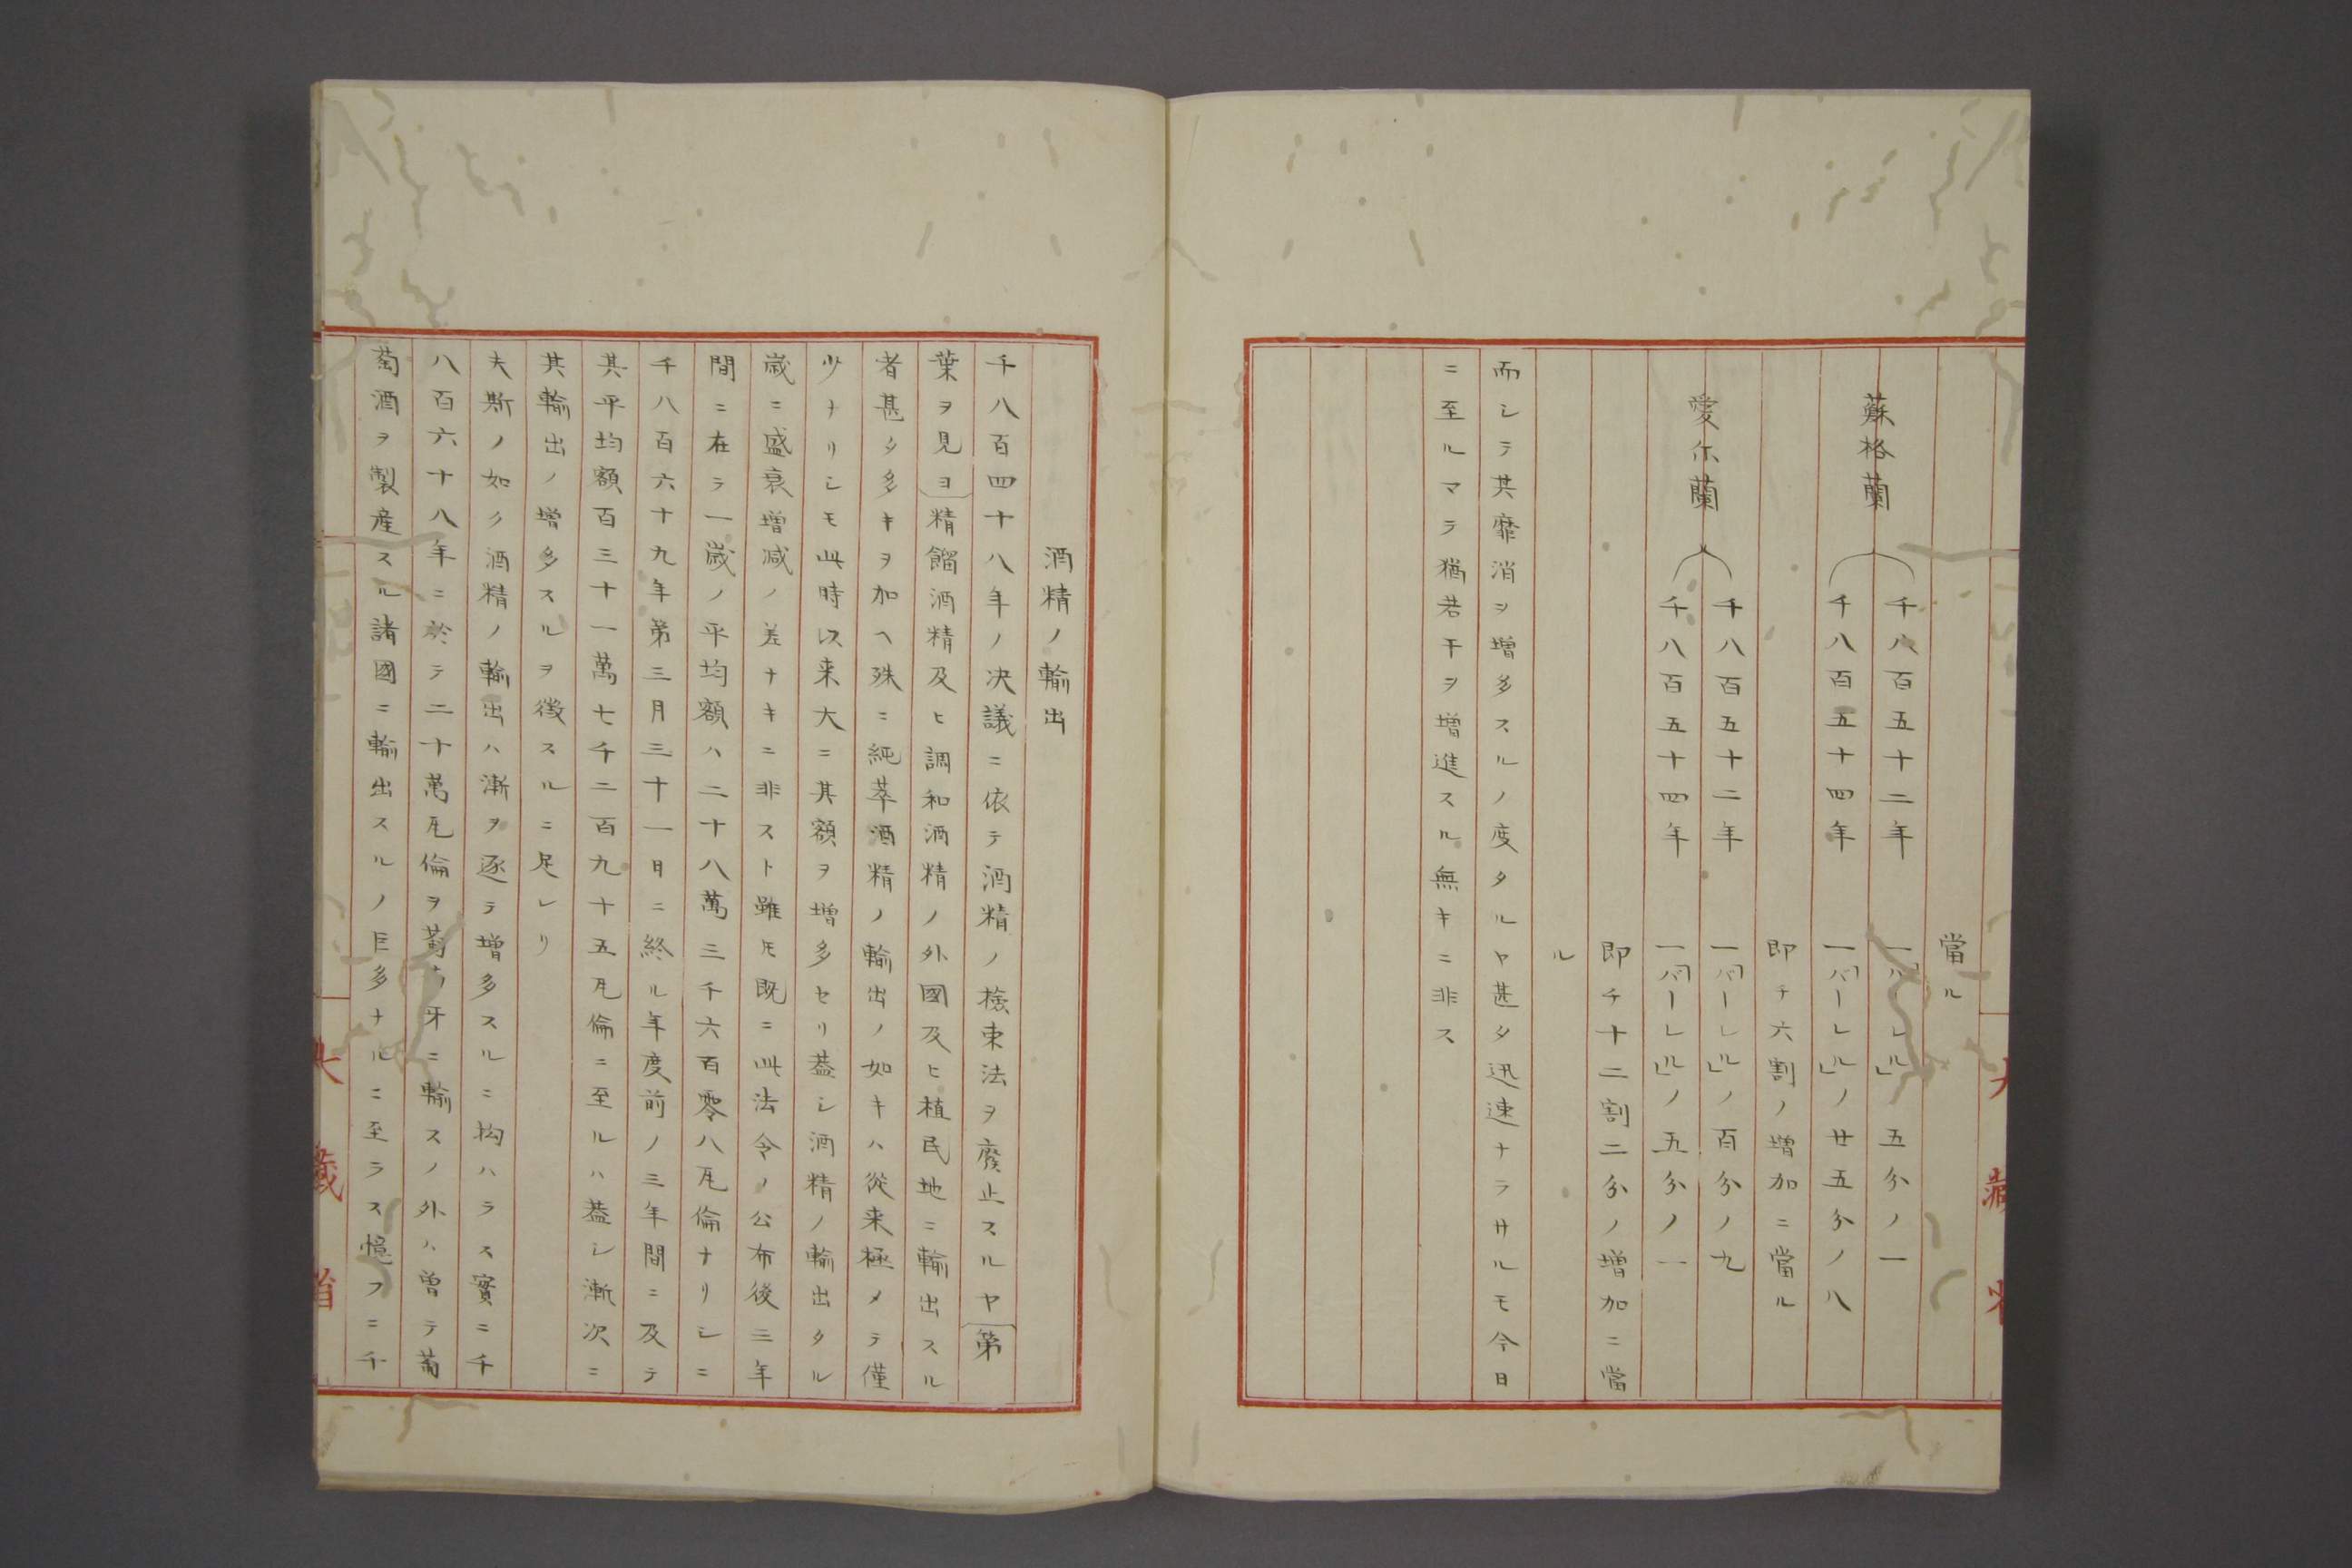 當ル
蘇格蘭
千八百五十二年 一「バーレル」ノ五分ノ一
千八百五十四年 一「バーレル」ノ廿五分ノ八
即チ六割ノ増加ニ當ル
愛尓蘭
千八百五十二年 一「バーレル」ノ百分ノ九
千八百五十四年 一「バーレル」ノ五分ノ一
即チ十二割二分ノ増加ニ當
ル
而シテ其靡消ヲ増多スルノ度タルヤ甚タ迅速ナラサルモ今日
ニ至ルマテ猶若干ヲ増進スル無キニ非ス
大藏省
酒精ノ輸出
千八百四十八年ノ决議ニ依テ酒精ノ檢束法ヲ廢止スルヤ（第
葉ヲ見ヨ）精餾酒精及ヒ調和酒精ノ外國及ヒ植民地ニ輸出スル
者甚タ多キヲ加ヘ殊ニ純萃酒精ノ輸出ノ如キハ從来極メテ僅
少ナリシモ此時以来大ニ其額ヲ増多セリ蓋シ酒精ノ輸出タル
歳ニ盛衰増减ノ差ナキニ非スト雖モ既ニ此法令ノ公布後三年
間ニ在テ一歳ノ平均額ハ二十八萬三千六百零八瓦倫ナリシニ
千八百六十九年第三月三十一日ニ終ル年度前ノ三年間ニ及テ
其平均額百三十一萬七千二百九十五瓦倫ニ至ルハ蓋シ漸次ニ
其輸出ノ増多スルヲ徴スルニ足レリ
夫斯ノ如ク酒精ノ輸出ハ漸ヲ逐テ増多スルニ拘ハラス實ニ千
八百六十八年ニ於テ二十萬瓦倫ヲ葡萄牙ニ輸スノ外ハ曽テ葡
萄酒ヲ製産スル諸國ニ輸出スルノ巨多ナルニ至ラス憶フニ千
大藏省